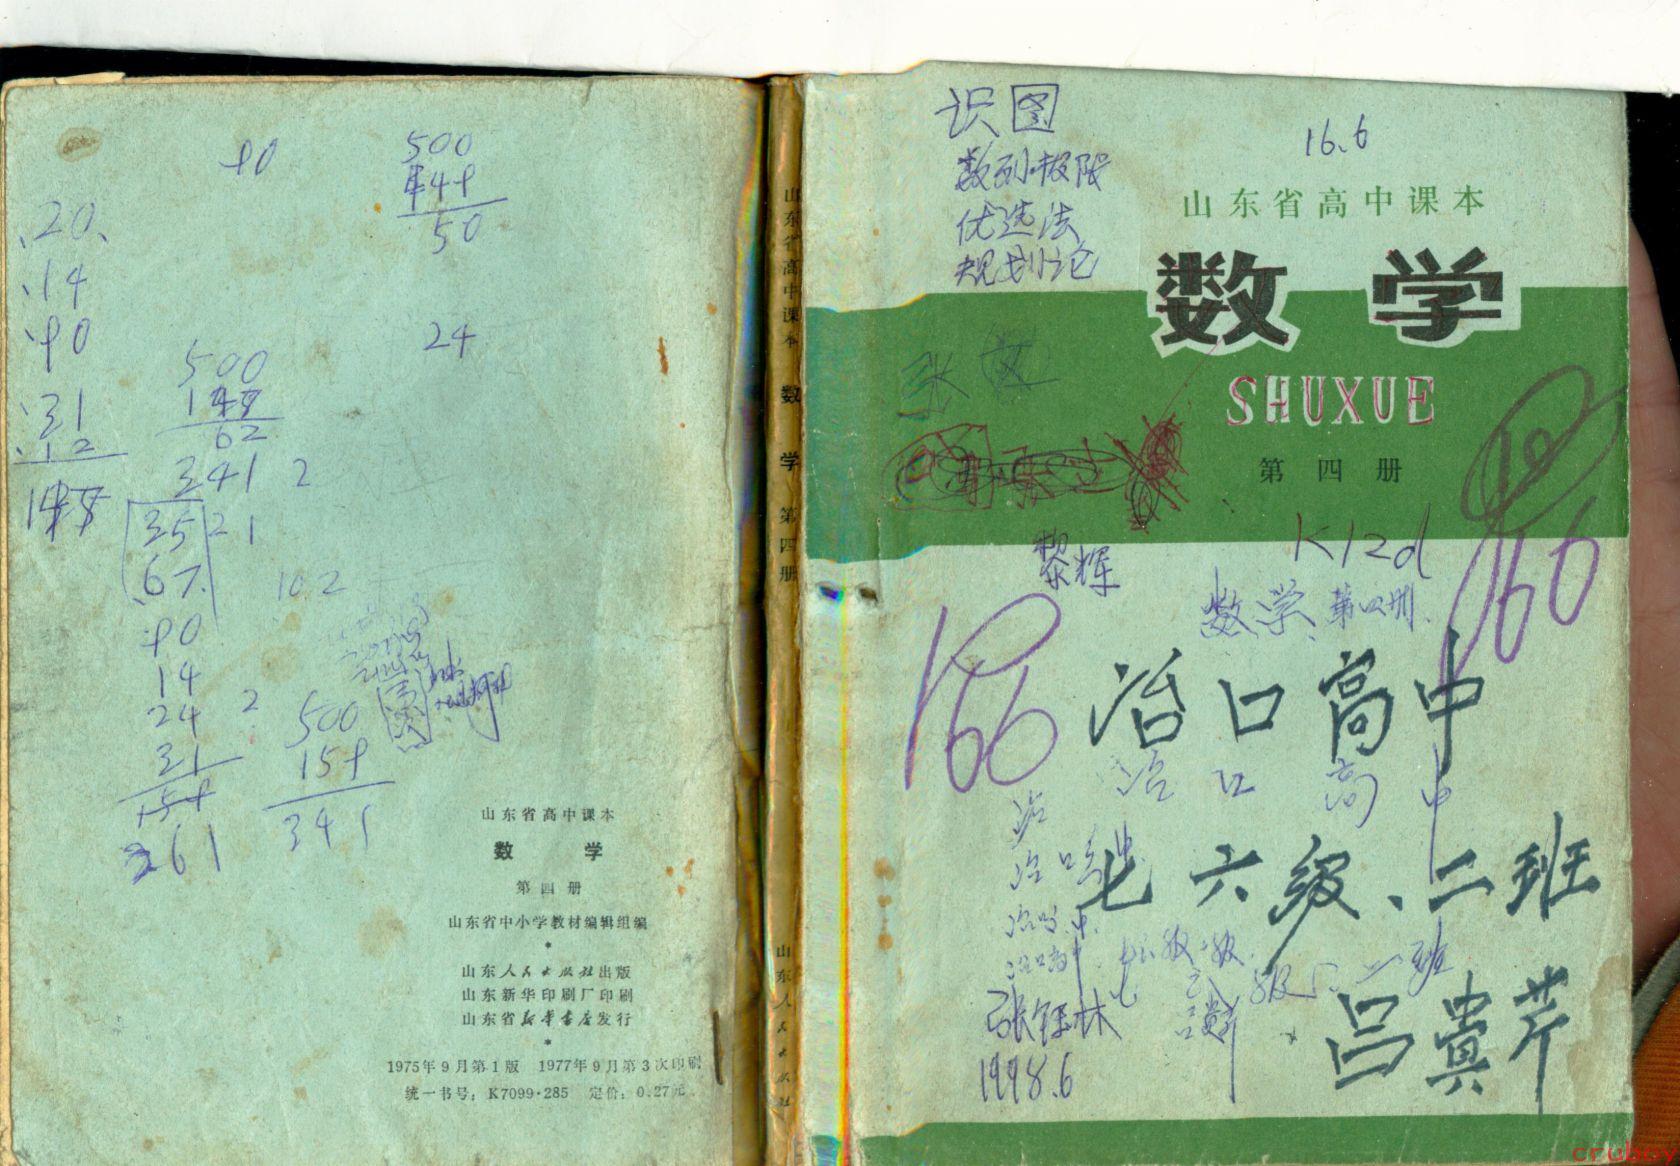 20
14
90
31
12
90
500
149
50
24
500
62
341 2
35 21
67
10.2
90
14
24 2
31
159
261
500
159
341
山东省高中课本
数 学
第四册
山东省中小学教材编辑组编
*
山东人民出版社出版
山东新华印刷厂印刷
山东省新华书店发行
*
1975年9月第1版 1977年9月第3次印刷
统一书号：K7099·285 定价：0.27元
山东省高中课本 数 学 第四册 山东人民出版社
识图
数列·极限
优选法
规划论
16.6
山东省高中课本
数学
SHUXUE
第四册
张
黎辉
K12d
数学 第四册
166
166
冶口高中
冶口高中
冶
冶口高中
七六级、二班
冶口高中
张钰林
1998.6
吕贵芹
cruboy